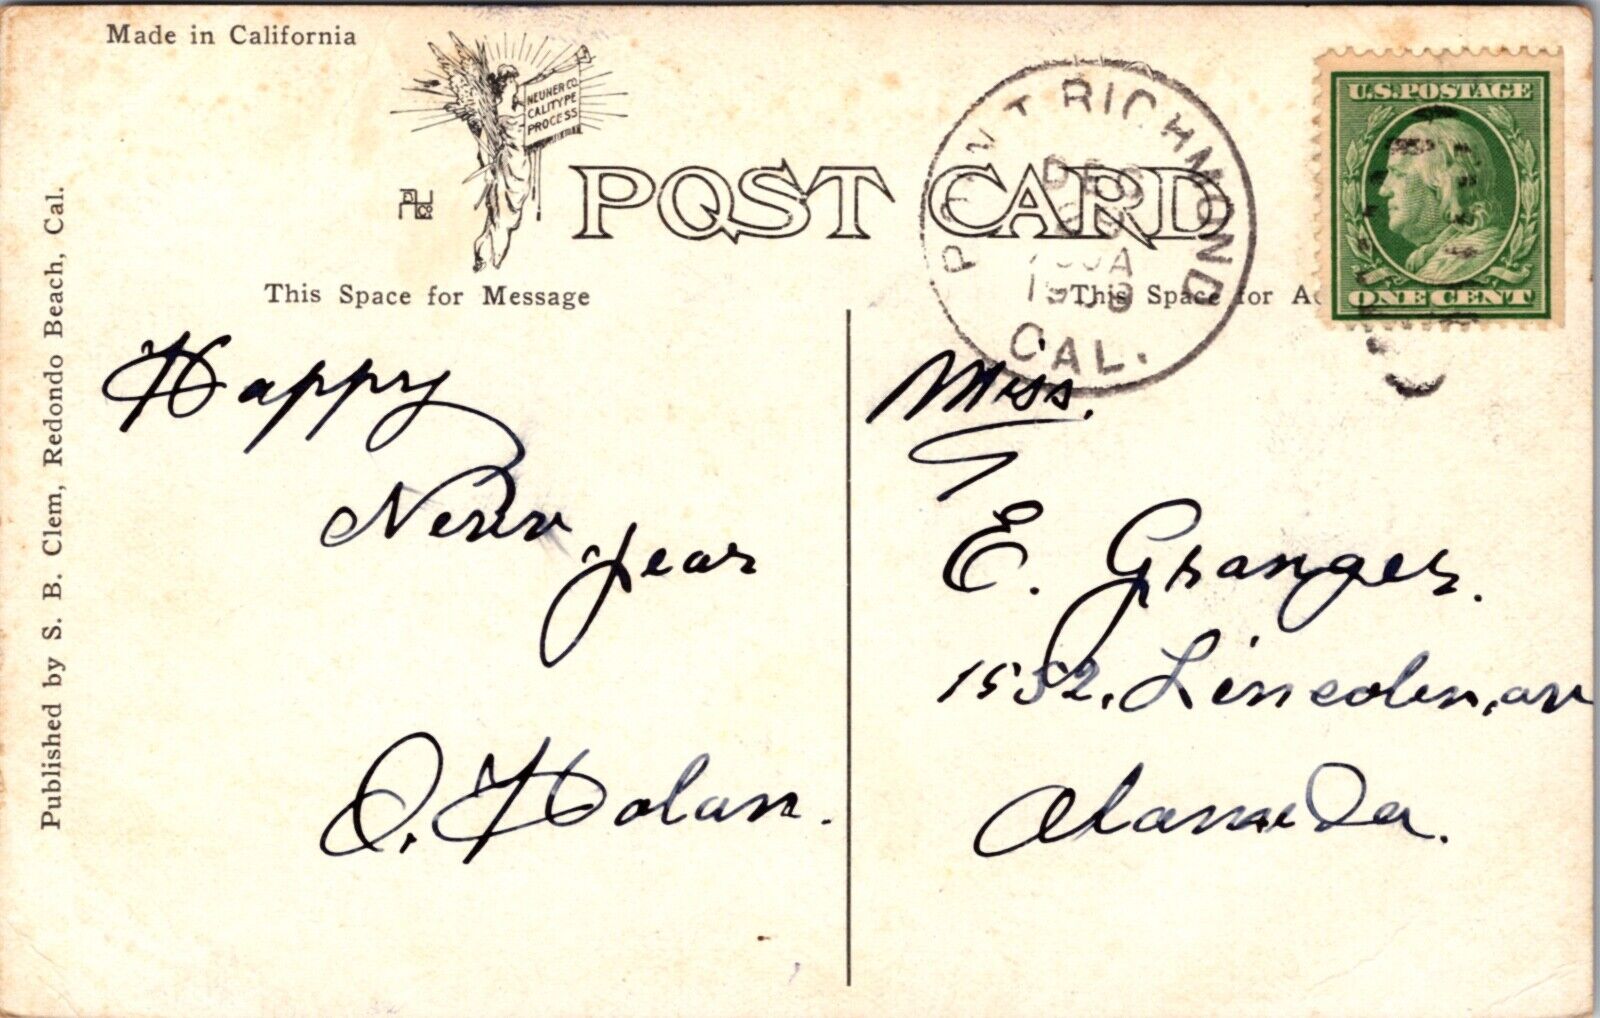 Made in California
NEUNER CO.
CALITYPE
PROCESS
POST CARD
POINT RICHMOND
DEC
1909
CAL.
U.S. POSTAGE
ONE CENT
This Space for Message
This Space for A
Published by S. B. Clem, Redondo Beach, Cal.
Happy
New Year
O. Holan.
Miss.
E. Granger.
1532. Lincoln, av
Alameda.